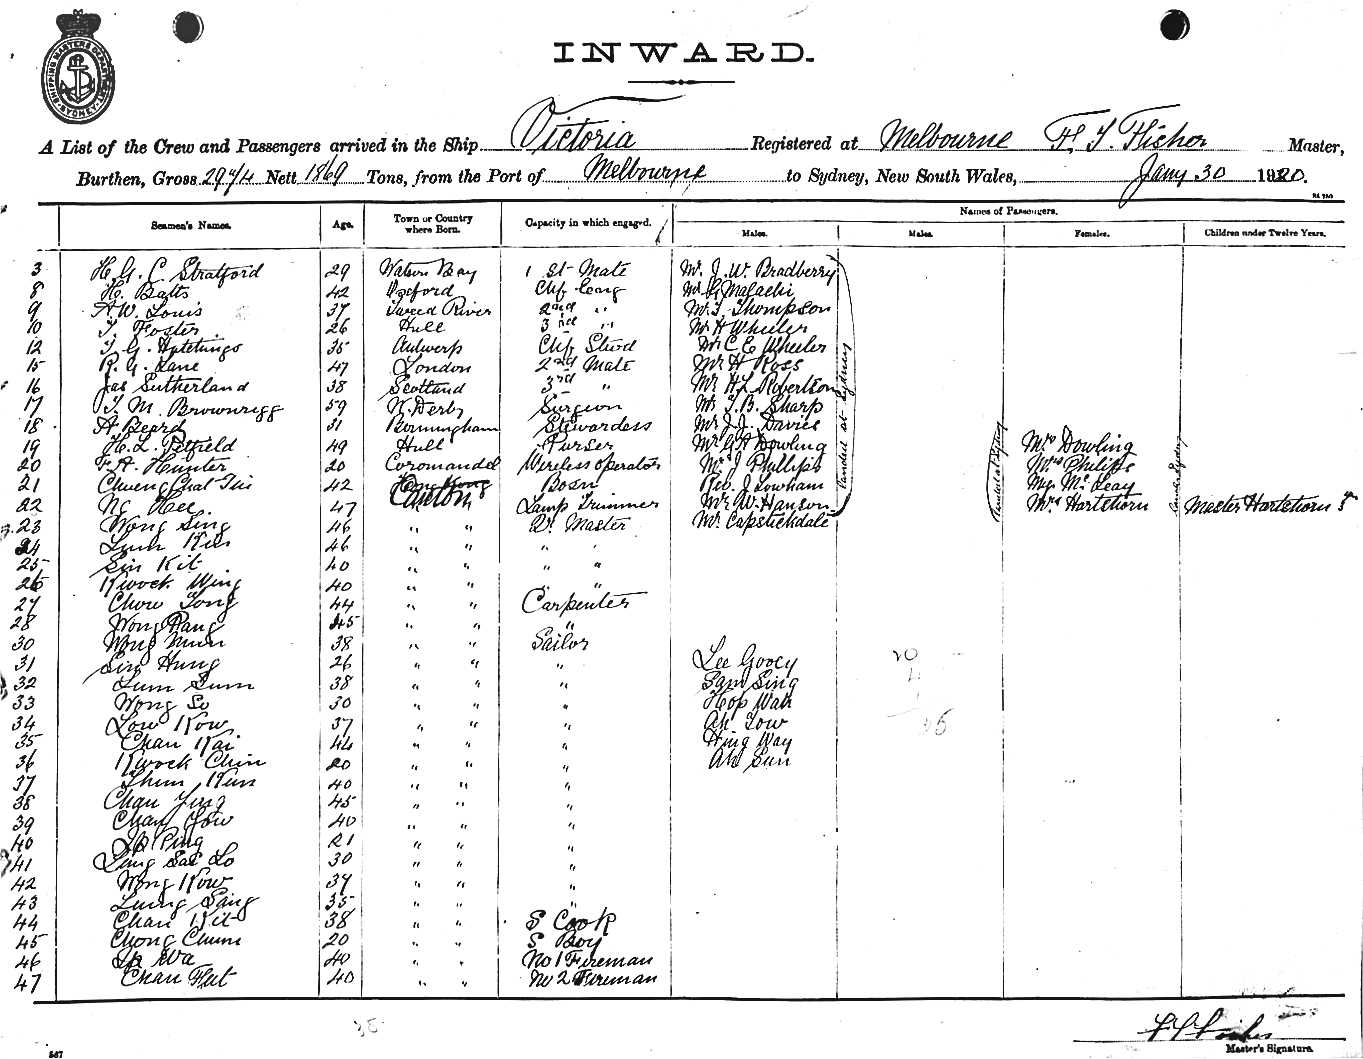 SHIPPING MASTERS DEPARTMENT SYDNEY
INWARD.
A List of the Crew and Passengers arrived in the Ship Victoria Registered at Melbourne F. J. Fisher Master,
Burthen, Gross 2974 Nett 1869 Tons, from the Port of Melbourne to Sydney, New South Wales, Jany 30 1920.
Names of Passengers.
Seamen's Names. Age. Town or Country where Born. Capacity in which engaged. Males. Males. Females. Children under Twelve Years.
3 H. G. C. Stratford 29 Watson Bay 1 st Mate Mr. J. W. Bradberry
8 H. Batts 42 Oxford Chf Eng Mr G. Malachi
9 A. W. Louis 37 Tweed River 2nd " Mr. T. Thompson
10 T. Foster 26 Hull 3rd " Mr H Wheeler
12 T. G. Hutchings 35 Antwerp Chf Stwd Mr C E Wheeler
15 R. G. Lane 47 London 2nd Mate Mr H Ross
16 Jas Sutherland 38 Scotland 3rd " Mr H L Robertson
17 T. M. Brownrigg 59 N. Derby Surgeon Mr T. B. Sharp
18 A Beard 31 Birmingham Stewardess Mr J. J. Davies
19 H. L. Petfield 49 Hull Purser Mr G A Dowling Mrs Dowling
20 F. H. Hunter 20 Coromandel Wireless operator Mr J Phillips Mrs Philips
21 42 Hong Kong Bosn Rev. J Lowham Mrs Mc Leay
22 Ng Hee. 47 Canton Lamp Trimmer Mr W. Hanson Mrs Hartehorn Master Hartehorn 5
23 Wong Sing 46 " " Qr Master Mr Capstickdale
Landed at Sydney
24 46 " " " "
25 Sin Kit 40 " " " "
26 Kwock Wing 40 " " " "
27 Chow Tong 44 " " Carpenter
28 Wong Pang 45 " " "
30 Wong Mun 38 " " Sailor
31 Sin Hung 26 " " " Lee Gooey
32 Lum Sum 38 " " " Sam Sing
33 Wong So 30 " " " Hop Wah
34 Low Kow 37 " " " Ah Low
35 Chan Kai 44 " " " Hing Way
36 Kwock Chin 20 " " " Ah Sun
37 Thim Kun 40 " " "
38 Chan Jung 45 " " "
39 Chan Yow 40 " " "
40 Ip Ping 21 " " "
41 30 " " "
42 Wong Kow 37 " " "
43 Lung Sang 35 " " "
44 Chan Kit 38 " " S Cook
45 Chong Chum 20 " " S Boy
46 Ip Wa 40 " " No 1 Fireman
47 Chan Fut 40 " " No 2 Fireman
35
Master's Signature.
567